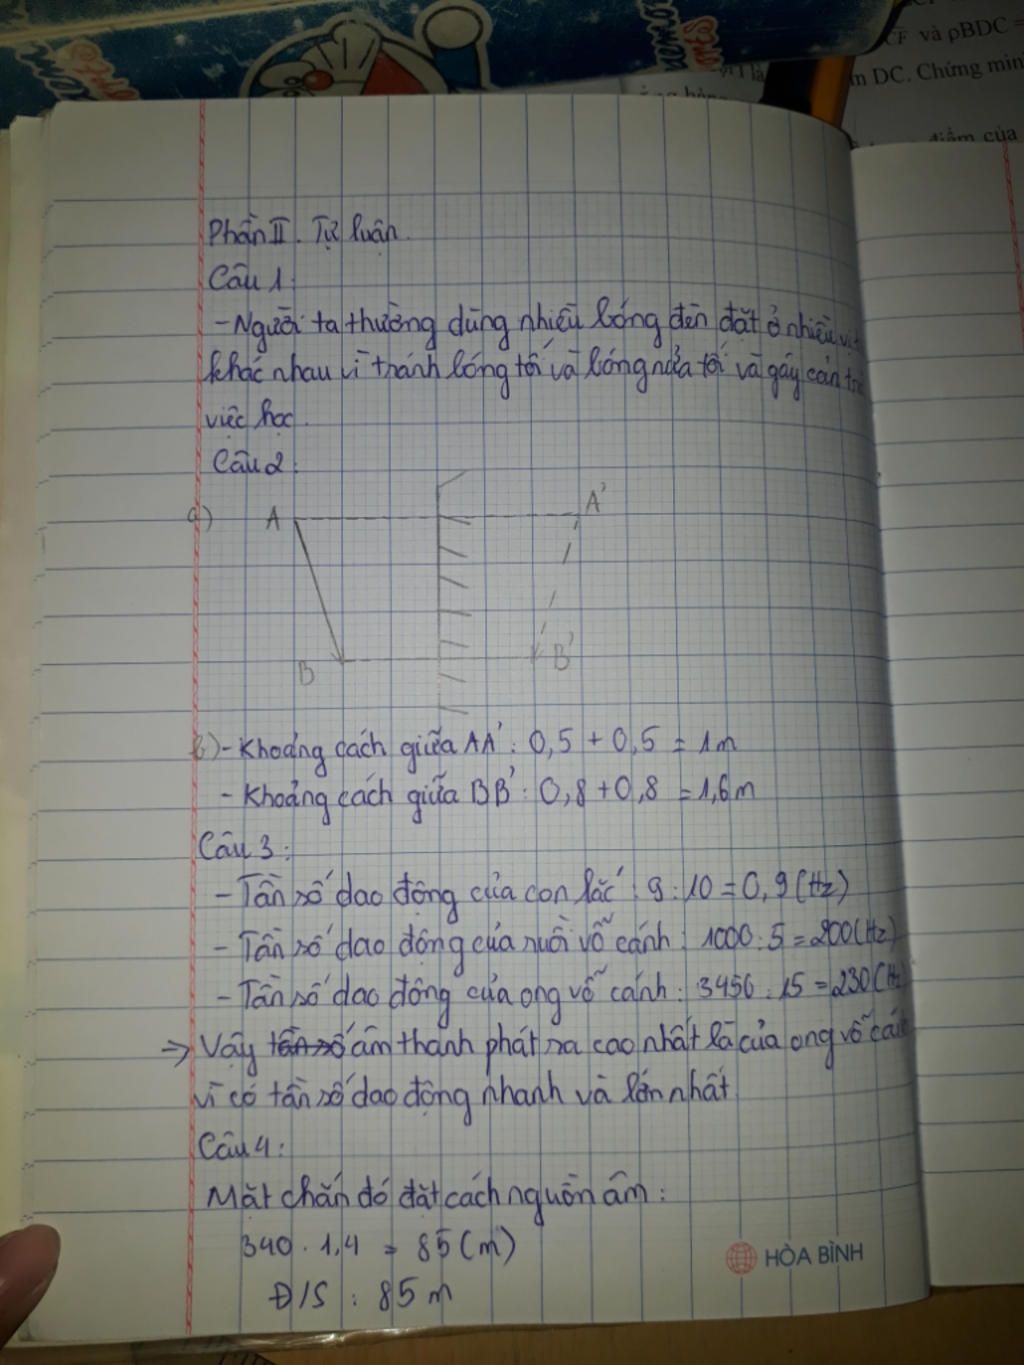 CF và ρBDC =
m DC. Chứng min
điểm của
Phần II. Tự luận.
Câu 1:
- Người ta thường dùng nhiều bóng đèn đặt ở nhiều vị
khác nhau vì tránh bóng tối và bóng nửa tối và gây cản trở
việc học.
Câu 2:
a) A A'
B B'
b) - Khoảng cách giữa AA': 0,5 + 0,5 = 1m
- Khoảng cách giữa BB': 0,8 + 0,8 = 1,6m
Câu 3:
- Tần số dao động của con lắc: 9 : 10 = 0,9 (Hz)
- Tần số dao động của ruồi vỗ cánh: 1000 : 5 = 200 (Hz)
- Tần số dao động của ong vỗ cánh: 3450 : 15 = 230 (Hz
→ Vậy tần số âm thanh phát ra cao nhất là của ong vỗ cánh
vì có tần số dao động nhanh và lớn nhất
Câu 4:
Mặt chắn đó đặt cách nguồn âm:
340 . 1,4 = 85 (m)
Đ/S : 85 m
HÒA BÌNH